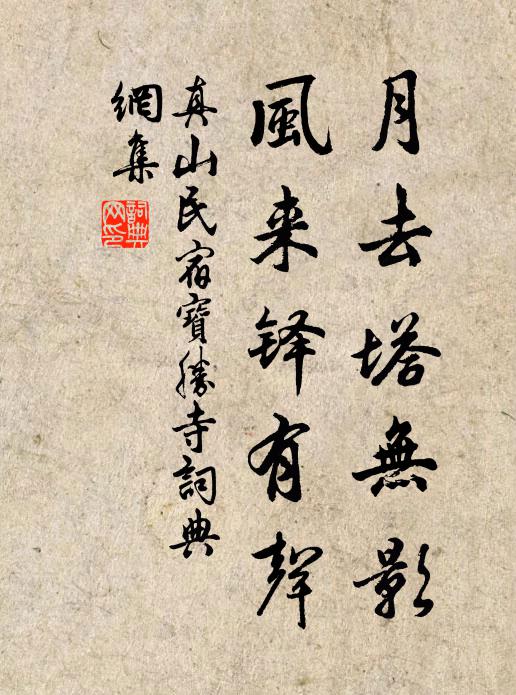 月去塔無影
風来铎有聲
真山民宿寶勝寺詞典
網集
詞典
网印